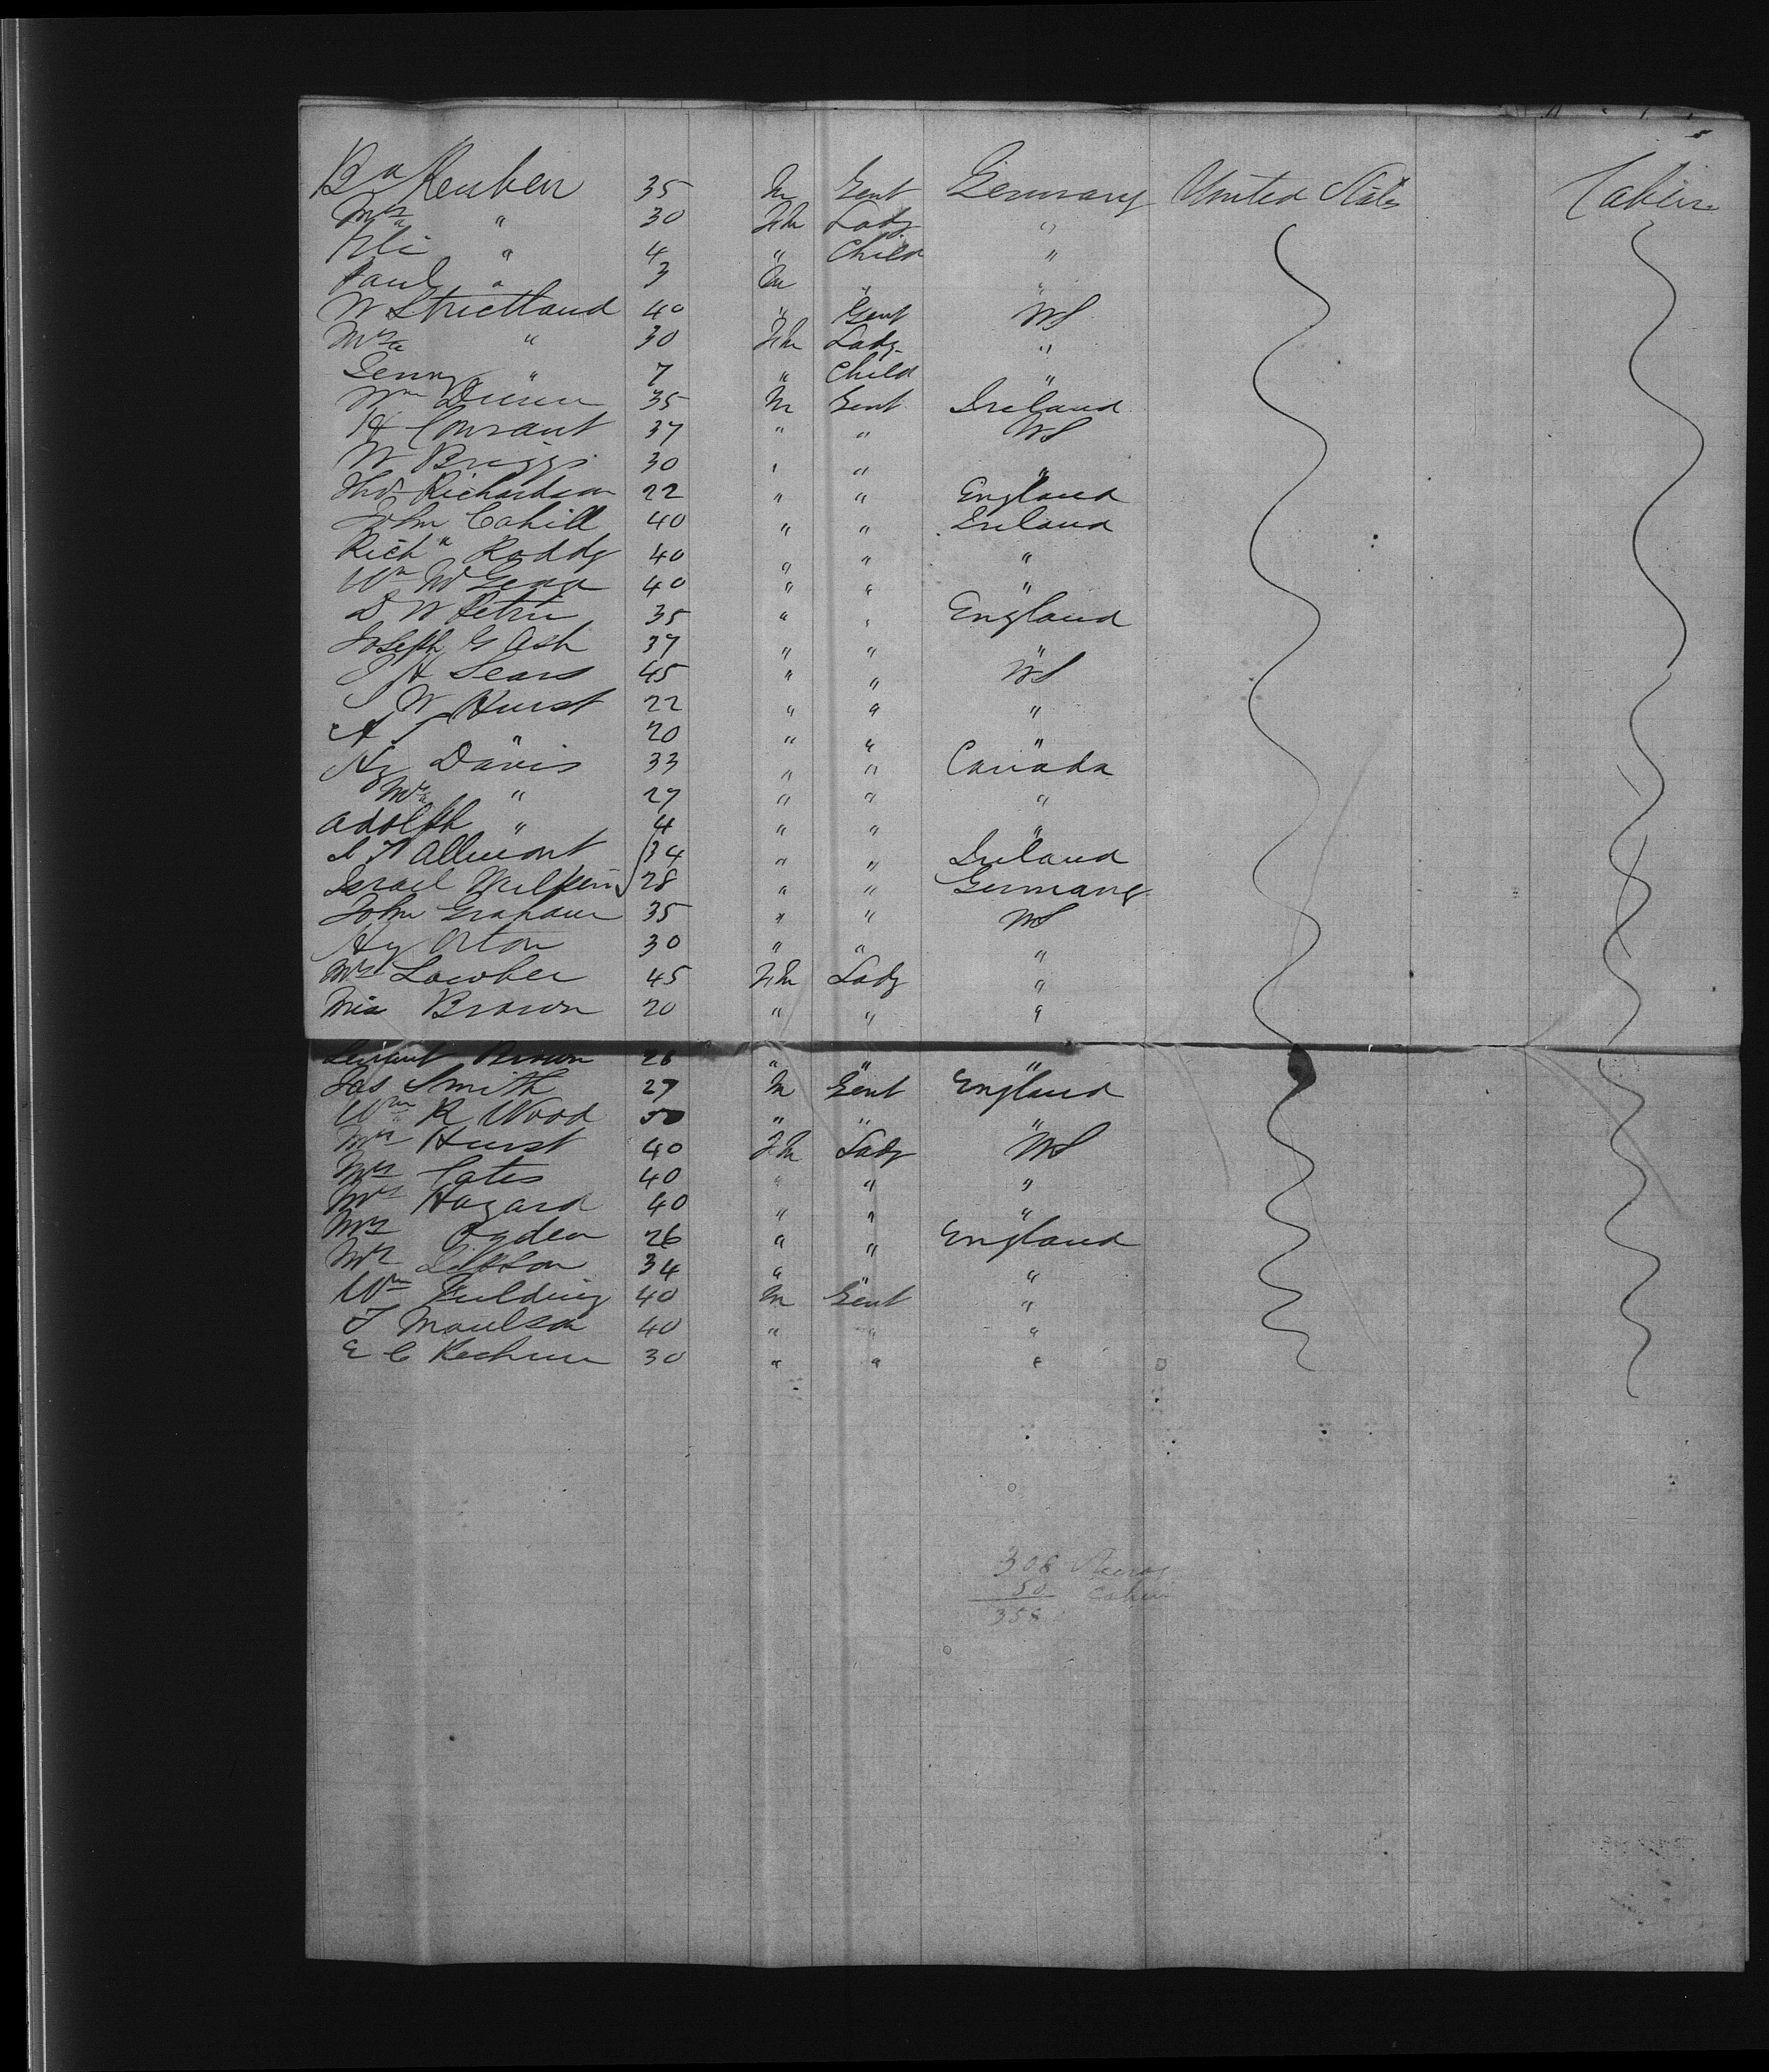 Bd Reuben 35 M Gent Germany United States Cabin
Mrs " 30 FM Lady "
" 4 " Child "
Paul " 3 M " "
W Strickland 40 " Gent US
Mrs " 30 FM Lady "
Jenny " 7 " Child "
Wm Dunn 35 M Gent Ireland
H Conrant 37 " " US
W Briggs 30 " " "
Thos Richardson 22 " " England
John Cahill 40 " " Ireland
Richd Roddy 40 " " "
Wm 40 " " "
D W Petrie 35 " " England
Joseph G Ash 37 " " "
J H Sears 45 " " US
J W Hurst 22 " " "
A J " 20 " " "
Hy Davis 33 " " Canada
Mrs " 27 " " "
Adolph " 4 " " "
Allemont 34 " " Ireland
Israel 28 " " Germany
John Graham 35 " " US
Hy Orton 30 " " "
Mrs Lowber 45 FM Lady "
Miss Brown 20 " " "
Servant Brown 26 " " "
Jas Smith 27 M Gent England
Wm R Wood 50 " " "
Mrs Hurst 40 FM Lady US
Mrs Cates 40 " " "
Mrs Hazard 40 " " "
Mrs Ogden 26 " " England
Mrs 34 " " "
Wm 40 M Gent "
T Moulson 40 " " "
E C 30 " " "
308
50 Cabin
358